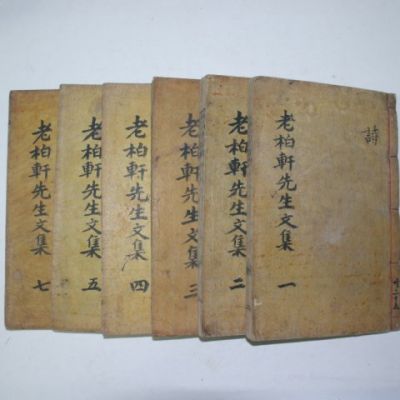 詩
老柏軒先生文集 一
老柏軒先生文集 二
老柏軒先生文集 三
老柏軒先生文集 四
老柏軒先生文集 五
老柏軒先生文集 七